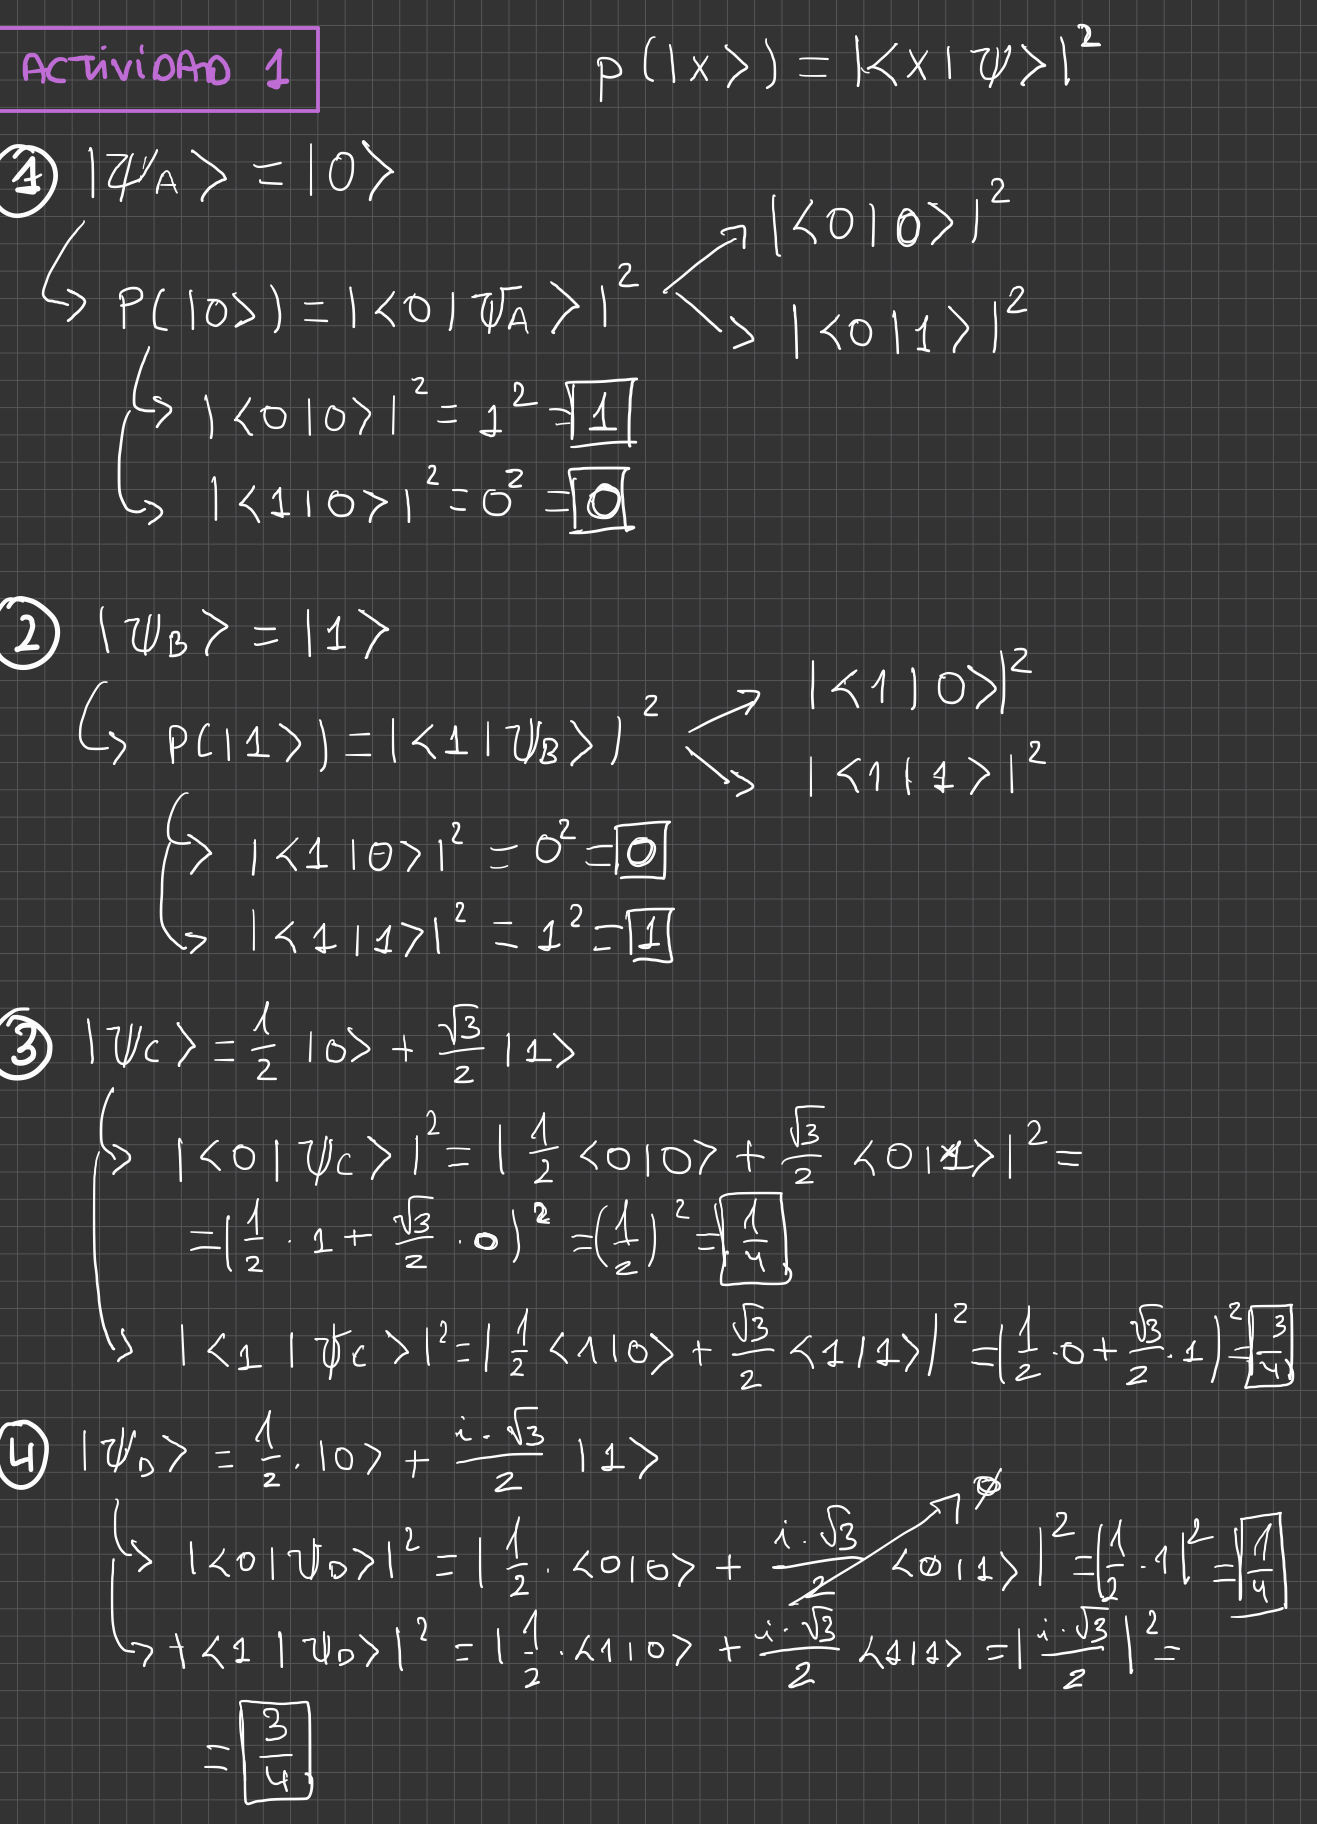 ACTIVIDAD 1
p(|x>) = |<x|ψ>|²
1 |ψA> = |0>
|<0|0>|²
P(|0>) = |<0|ψA>|²
|<0|1>|²
|<0|0>|² = 1² = 1
|<1|0>|² = 0² = 0
2 |ψB> = |1>
|<1|0>|²
P(|1>) = |<1|ψB>|²
|<1|1>|²
|<1|0>|² = 0² = 0
|<1|1>|² = 1² = 1
3 |ψC> = 1/2 |0> + √3/2 |1>
|<0|ψC>|² = |1/2 <0|0> + √3/2 <0|1>|² =
= (1/2 · 1 + √3/2 · 0)² = (1/2)² = 1/4
|<1|ψC>|² = |1/2 <1|0> + √3/2 <1|1>|² = (1/2 · 0 + √3/2 · 1)² = 3/4
4 |ψD> = 1/2 · |0> + i·√3/2 |1>
0
|<0|ψD>|² = |1/2 · <0|0> + i·√3/2 <0|1>|² = |1/2 · 1|² = 1/4
|<1|ψD>|² = |1/2 · <1|0> + i·√3/2 <1|1> = |i·√3/2|² =
= 3/4